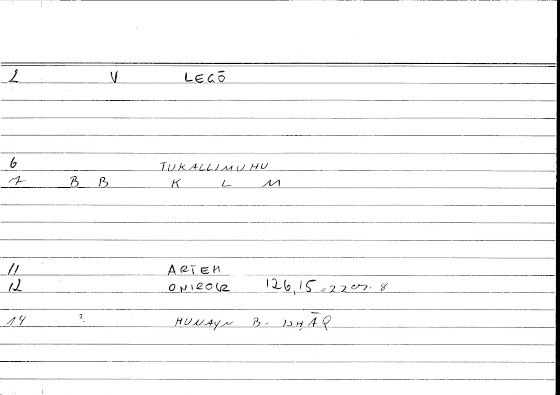 2 V LEGŌ
6 TUKALLIMUHU
7 B B K L M
11 ARTEM
12 ONIROCR 126,15 = 227. 8
14 ? HUNAYN B. ISḤĀQ